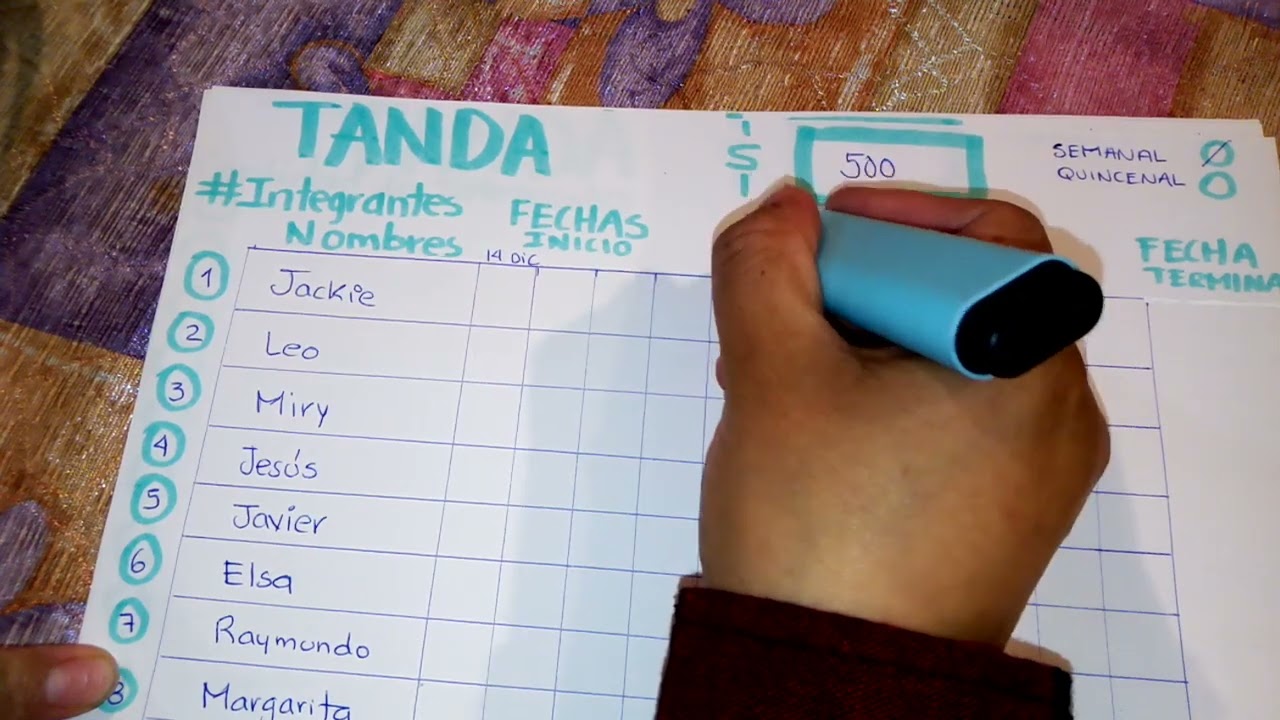 TANDA
$ 500
SEMANAL
QUINCENAL
#Integrantes
Nombres
FECHAS
INICIO
FECHA
TERMINA
14 DIC
1 Jackie
2 Leo
3 Miry
4 Jesús
5 Javier
6 Elsa
7 Raymundo
8 Margarita